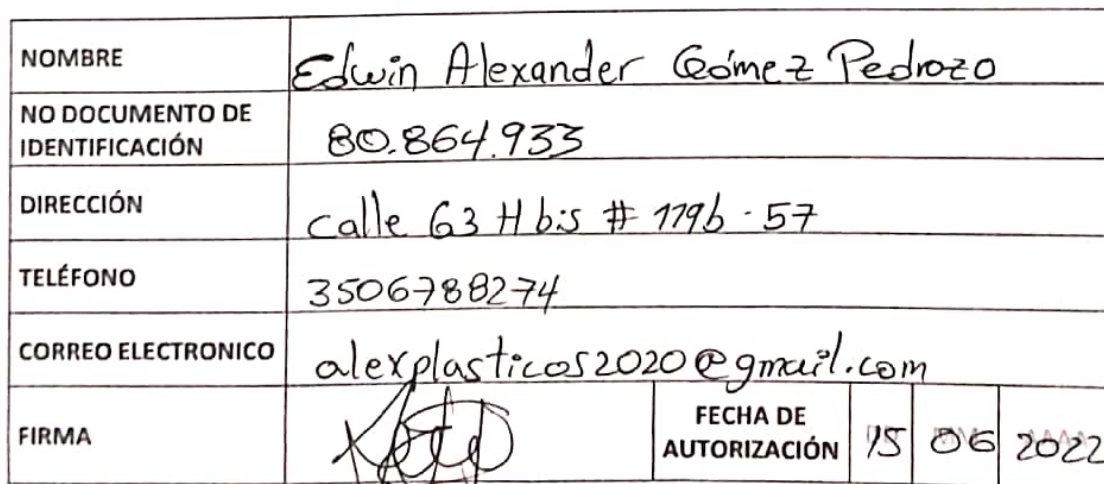 NOMBRE Edwin Alexander Gómez Pedrozo
NO DOCUMENTO DE
IDENTIFICACIÓN 80.864.933
DIRECCIÓN calle 63 H bis # 119b - 57
TELÉFONO 3506788274
CORREO ELECTRONICO alexplasticos2020@gmail.com
FIRMA FECHA DE
AUTORIZACIÓN 15 06 2022